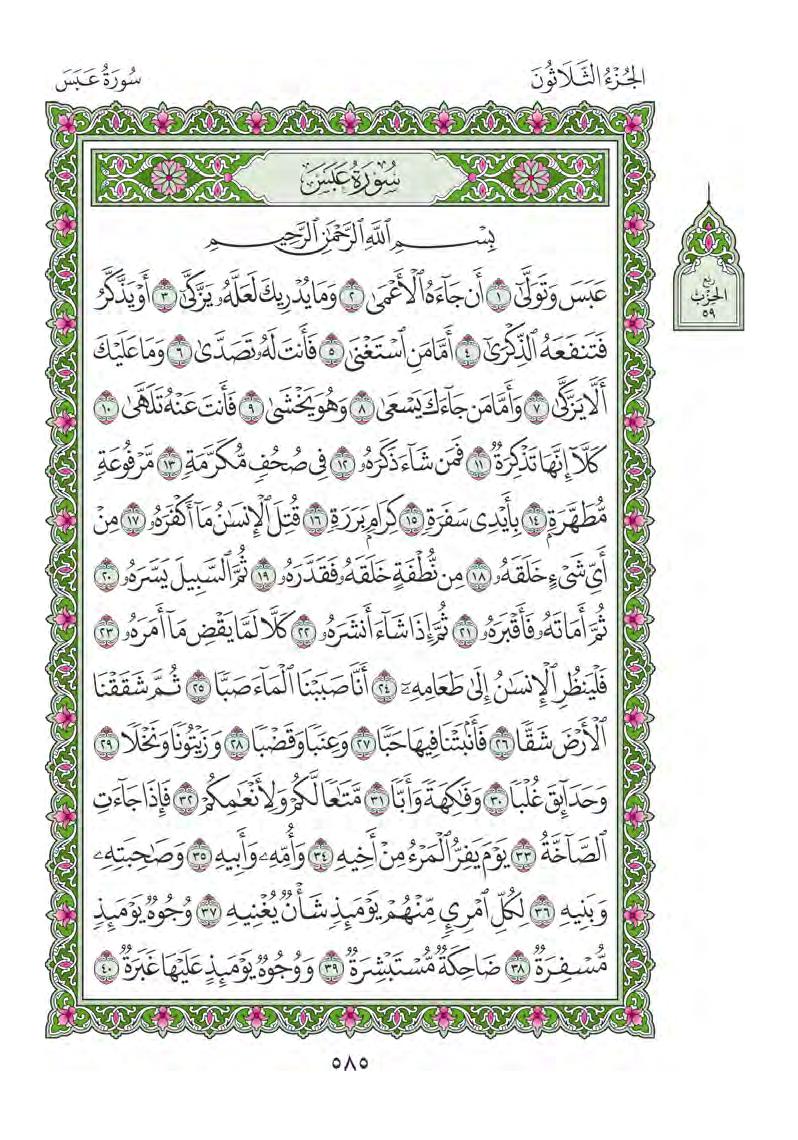 الجُزْءُ الثَّلَاثُونَ
سُورَةُ عَبَسَ
سُورَةُ عَبَسَ
بِسْمِ ٱللَّهِ ٱلرَّحْمَٰنِ ٱلرَّحِيمِ
عَبَسَ وَتَوَلَّىٰٓ ١ أَن جَآءَهُ ٱلْأَعْمَىٰ ٢ وَمَا يُدْرِيكَ لَعَلَّهُۥ يَزَّكَّىٰٓ ٣ أَوْ يَذَّكَّرُ
فَتَنفَعَهُ ٱلذِّكْرَىٰٓ ٤ أَمَّا مَنِ ٱسْتَغْنَىٰ ٥ فَأَنتَ لَهُۥ تَصَدَّىٰ ٦ وَمَا عَلَيْكَ
أَلَّا يَزَّكَّىٰ ٧ وَأَمَّا مَن جَآءَكَ يَسْعَىٰ ٨ وَهُوَ يَخْشَىٰ ٩ فَأَنتَ عَنْهُ تَلَهَّىٰ ١٠
كَلَّآ إِنَّهَا تَذْكِرَةٌ ١١ فَمَن شَآءَ ذَكَرَهُۥ ١٢ فِى صُحُفٍ مُّكَرَّمَةٍ ١٣ مَّرْفُوعَةٍ
مُّطَهَّرَةٍۭ ١٤ بِأَيْدِى سَفَرَةٍ ١٥ كِرَامٍۭ بَرَرَةٍ ١٦ قُتِلَ ٱلْإِنسَٰنُ مَآ أَكْفَرَهُۥ ١٧ مِنْ
أَىِّ شَىْءٍ خَلَقَهُۥ ١٨ مِن نُّطْفَةٍ خَلَقَهُۥ فَقَدَّرَهُۥ ١٩ ثُمَّ ٱلسَّبِيلَ يَسَّرَهُۥ ٢٠
ثُمَّ أَمَاتَهُۥ فَأَقْبَرَهُۥ ٢١ ثُمَّ إِذَا شَآءَ أَنشَرَهُۥ ٢٢ كَلَّا لَمَّا يَقْضِ مَآ أَمَرَهُۥ ٢٣
فَلْيَنظُرِ ٱلْإِنسَٰنُ إِلَىٰ طَعَامِهِۦٓ ٢٤ أَنَّا صَبَبْنَا ٱلْمَآءَ صَبًّا ٢٥ ثُمَّ شَقَقْنَا
ٱلْأَرْضَ شَقًّا ٢٦ فَأَنۢبَتْنَا فِيهَا حَبًّا ٢٧ وَعِنَبًا وَقَضْبًا ٢٨ وَزَيْتُونًا وَنَخْلًا ٢٩
وَحَدَآئِقَ غُلْبًا ٣٠ وَفَٰكِهَةً وَأَبًّا ٣١ مَّتَٰعًا لَّكُمْ وَلِأَنْعَٰمِكُمْ ٣٢ فَإِذَا جَآءَتِ
ٱلصَّآخَّةُ ٣٣ يَوْمَ يَفِرُّ ٱلْمَرْءُ مِنْ أَخِيهِ ٣٤ وَأُمِّهِۦ وَأَبِيهِ ٣٥ وَصَٰحِبَتِهِۦ
وَبَنِيهِ ٣٦ لِكُلِّ ٱمْرِئٍ مِّنْهُمْ يَوْمَئِذٍ شَأْنٌ يُغْنِيهِ ٣٧ وُجُوهٌ يَوْمَئِذٍ
مُّسْفِرَةٌ ٣٨ ضَاحِكَةٌ مُّسْتَبْشِرَةٌ ٣٩ وَوُجُوهٌ يَوْمَئِذٍ عَلَيْهَا غَبَرَةٌ ٤٠
ربع
الحزب
٥٩
٥٨٥